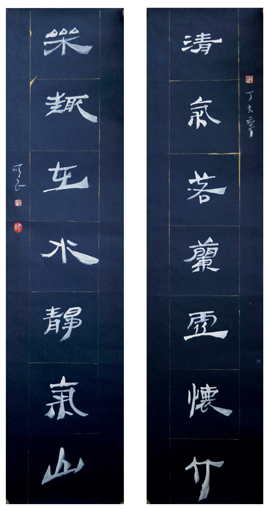 清氣若蘭虛懷竹
樂趣在水靜氣山